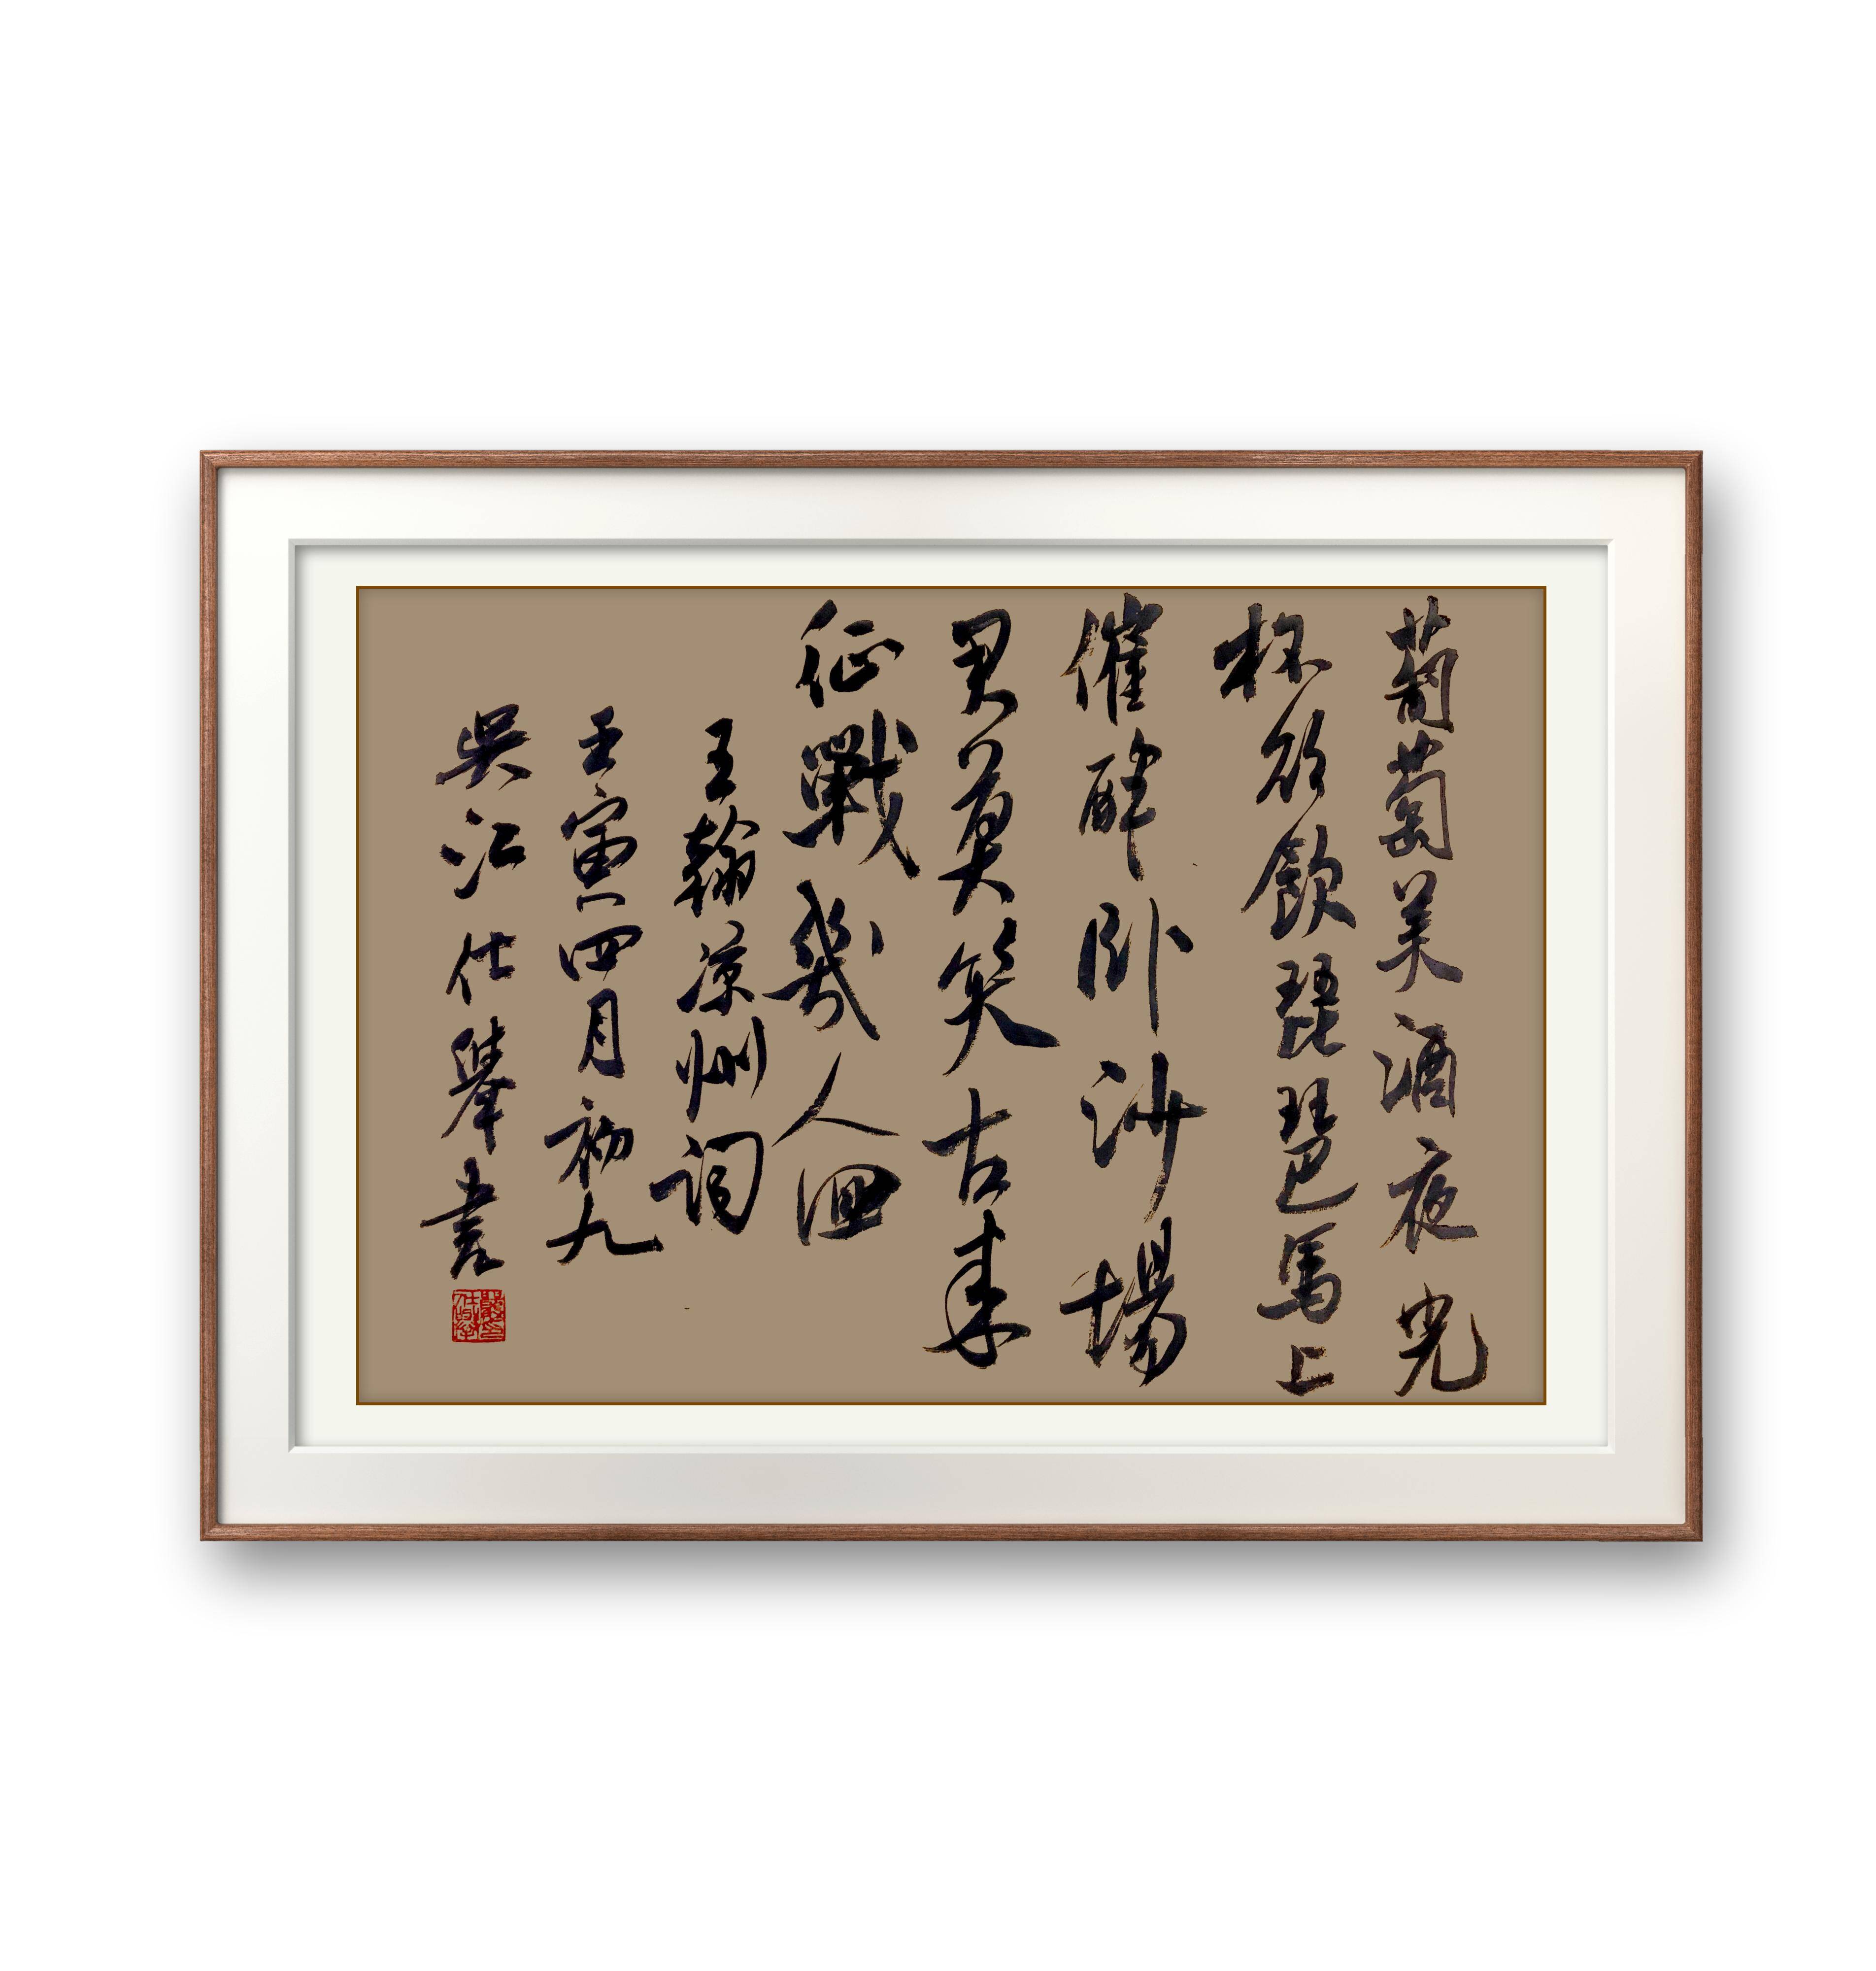 葡萄美酒夜光
杯欲飲琵琶馬上
催醉卧沙場
君莫笑古来
征戰幾人回
王翰凉州词
壬寅四月初九
吴江仕舉書